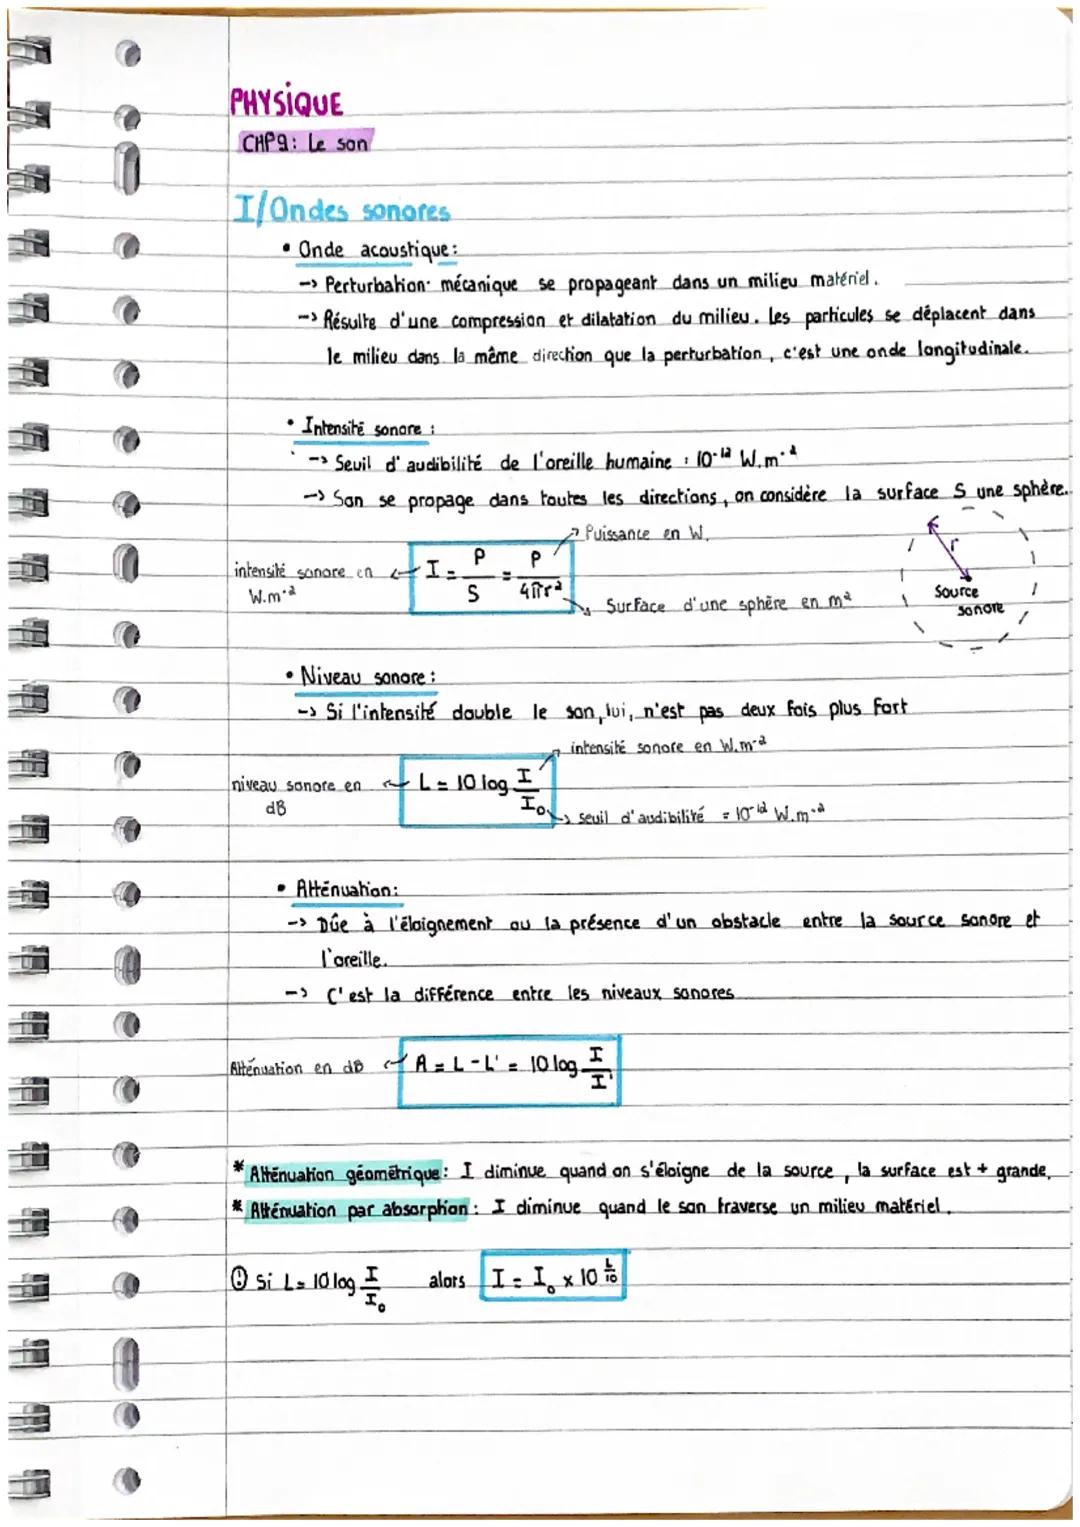 PHYSIQUE
CHP9: Le son
I/Ondes sonores
• Onde acoustique:
-> Perturbation mécanique se propageant dans un milieu matériel.
-> Résulte d'une compression et dilatation du milieu. Les particules se déplacent dans
le milieu dans la même direction que la perturbation, c'est une onde longitudinale.
• Intensité sonore :
-> Seuil d'audibilité de l'oreille humaine : 10⁻¹² W.m⁻²
-> Son se propage dans toutes les directions, on considère la surface S une sphère.
Puissance en W.
intensité sonore en I = P/S = P/4πr²
W.m⁻²
Surface d'une sphère en m²
r
Source
sonore
• Niveau sonore :
-> Si l'intensité double le son, lui, n'est pas deux fois plus fort
intensité sonore en W.m⁻²
niveau sonore en L = 10 log I/I₀
dB
seuil d'audibilité = 10⁻¹² W.m⁻²
• Atténuation:
-> Dûe à l'éloignement ou la présence d'un obstacle entre la source sonore et
l'oreille.
-> C'est la différence entre les niveaux sonores
Atténuation en dB A = L - L' = 10 log I/I'
* Atténuation géométrique : I diminue quand on s'éloigne de la source, la surface est + grande.
* Atténuation par absorption : I diminue quand le son traverse un milieu matériel.
! Si L = 10 log I/I₀ alors I = I₀ x 10^(L/10)